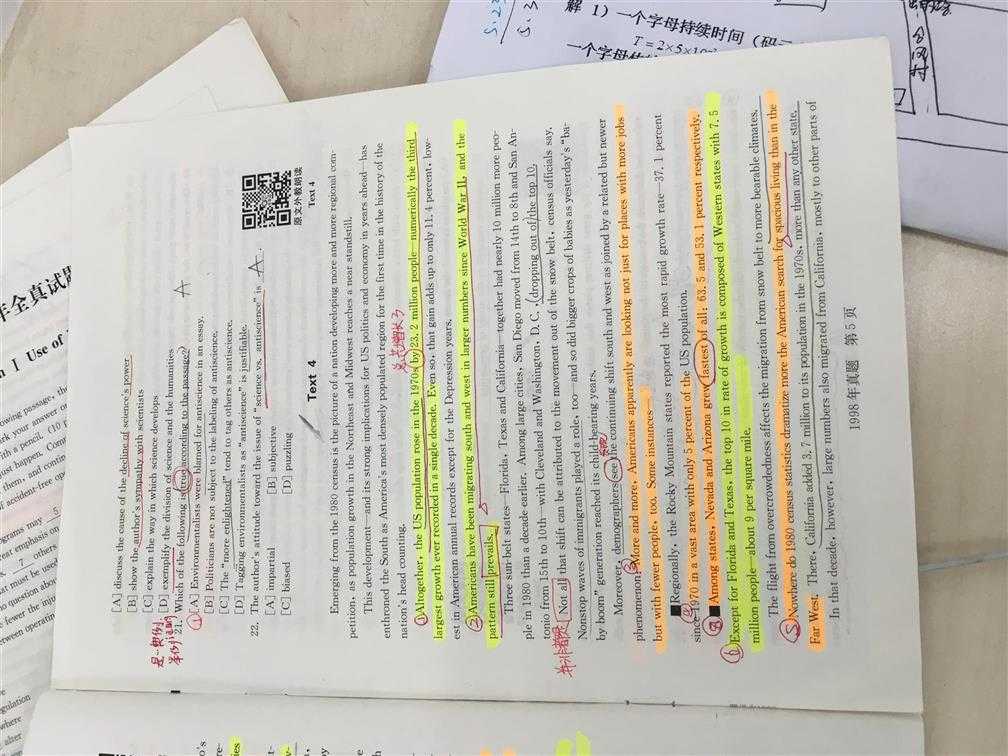 解 1）一个字母持续时间（码元
T = 2×5×10
一个字母
年全真试题
n I Use of
owing passage,
rk your answer
with a pencil. (10
ust happen. Com
them, and contin
f accident-free ope
ograms may 5
eat emphasis on
7 others
must be used
o question about
e fewer the injur
tween operating
[A] discuss the cause of the decline of science's power
[B] show the author's sympathy with scientists
[C] explain the way in which science develops
[D] exemplify the division of science and the humanities
21. Which of the following is true according to the passage?
[A] Environmentalists were blamed for antiscience in an essay.
[B] Politicians are not subject to the labeling of antiscience.
[C] The "more enlightened" tend to tag others as antiscience.
[D] Tagging environmentalists as "antiscience" is justifiable.
22. The author's attitude toward the issue of "science vs. antiscience" is A .
[A] impartial [B] subjective
[C] biased [D] puzzling
A
原文外教朗读
Text 4
Text 4
Emerging from the 1980 census is the picture of a nation developing more and more regional com-
petition, as population growth in the Northeast and Midwest reaches a near standstill.
This development—and its strong implications for US politics and economy in years ahead—has
enthroned the South as America's most densely populated region for the first time in the history of the
nation's head counting.
总共增长了
①Altogether, the US population rose in the 1970s by 23. 2 million people—numerically the third
largest growth ever recorded in a single decade. Even so, that gain adds up to only 11. 4 percent, low-
est in American annual records except for the Depression years.
②Americans have been migrating south and west in larger numbers since World War II, and the
pattern still prevails.
Three sun-belt states—Florida, Texas and California—together had nearly 10 million more peo-
ple in 1980 than a decade earlier. Among large cities, San Diego moved from 14th to 8th and San An-
tonio from 15th to 10th—with Cleveland and Washington, D. C. , dropping out of the top 10.
Not all that shift can be attributed to the movement out of the snow belt, census officials say.
Nonstop waves of immigrants played a role, too—and so did bigger crops of babies as yesterday's "ba-
by boom" generation reached its child-bearing years.
Moreover, demographers see the continuing shift south and west as joined by a related but newer
phenomenon: ③More and more, Americans apparently are looking not just for places with more jobs
but with fewer people, too. Some instances—
■Regionally, the Rocky Mountain states reported the most rapid growth rate—37. 1 percent
since 1970 in a vast area with only 5 percent of the US population.
■Among states, Nevada and Arizona grew fastest of all: 63. 5 and 53. 1 percent respectively.
⑥Except for Florida and Texas, the top 10 in rate of growth is composed of Western states with 7. 5
million people—about 9 per square mile.
The flight from overcrowdedness affects the migration from snow belt to more bearable climates.
⑤Nowhere do 1980 census statistics dramatize more the American search for spacious living than in the
Far West. There, California added 3. 7 million to its population in the 1970s, more than any other state.
In that decade, however, large numbers also migrated from California, mostly to other parts of
1998 年真题 第 5 页